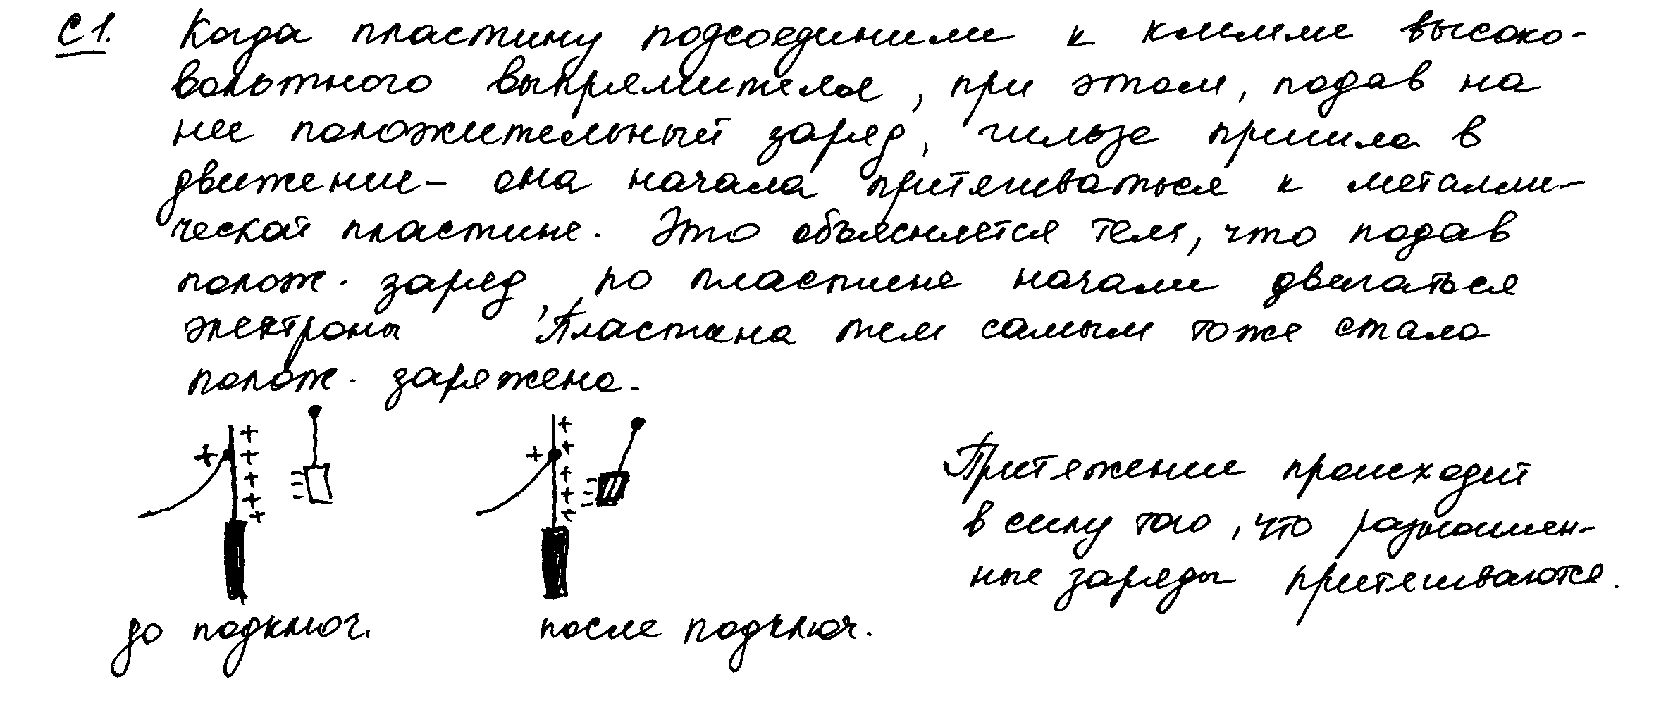 С1. Когда пластину подсоединили к клемме высоко-
вольтного выпрямителя, при этом, подав на
нее положительный заряд, гильза пришла в
движение – она начала притягиваться к металли-
ческой пластине. Это объясняется тем, что подав
полож. заряд, по пластине начали двигаться
электроны. Пластина тем самым тоже стала
полож. заряжена.
+ + + + + +
+ + + + + +
Притяжение происходит
в силу того, что разноимен-
ные заряды притягиваются.
до подключ. после подключ.